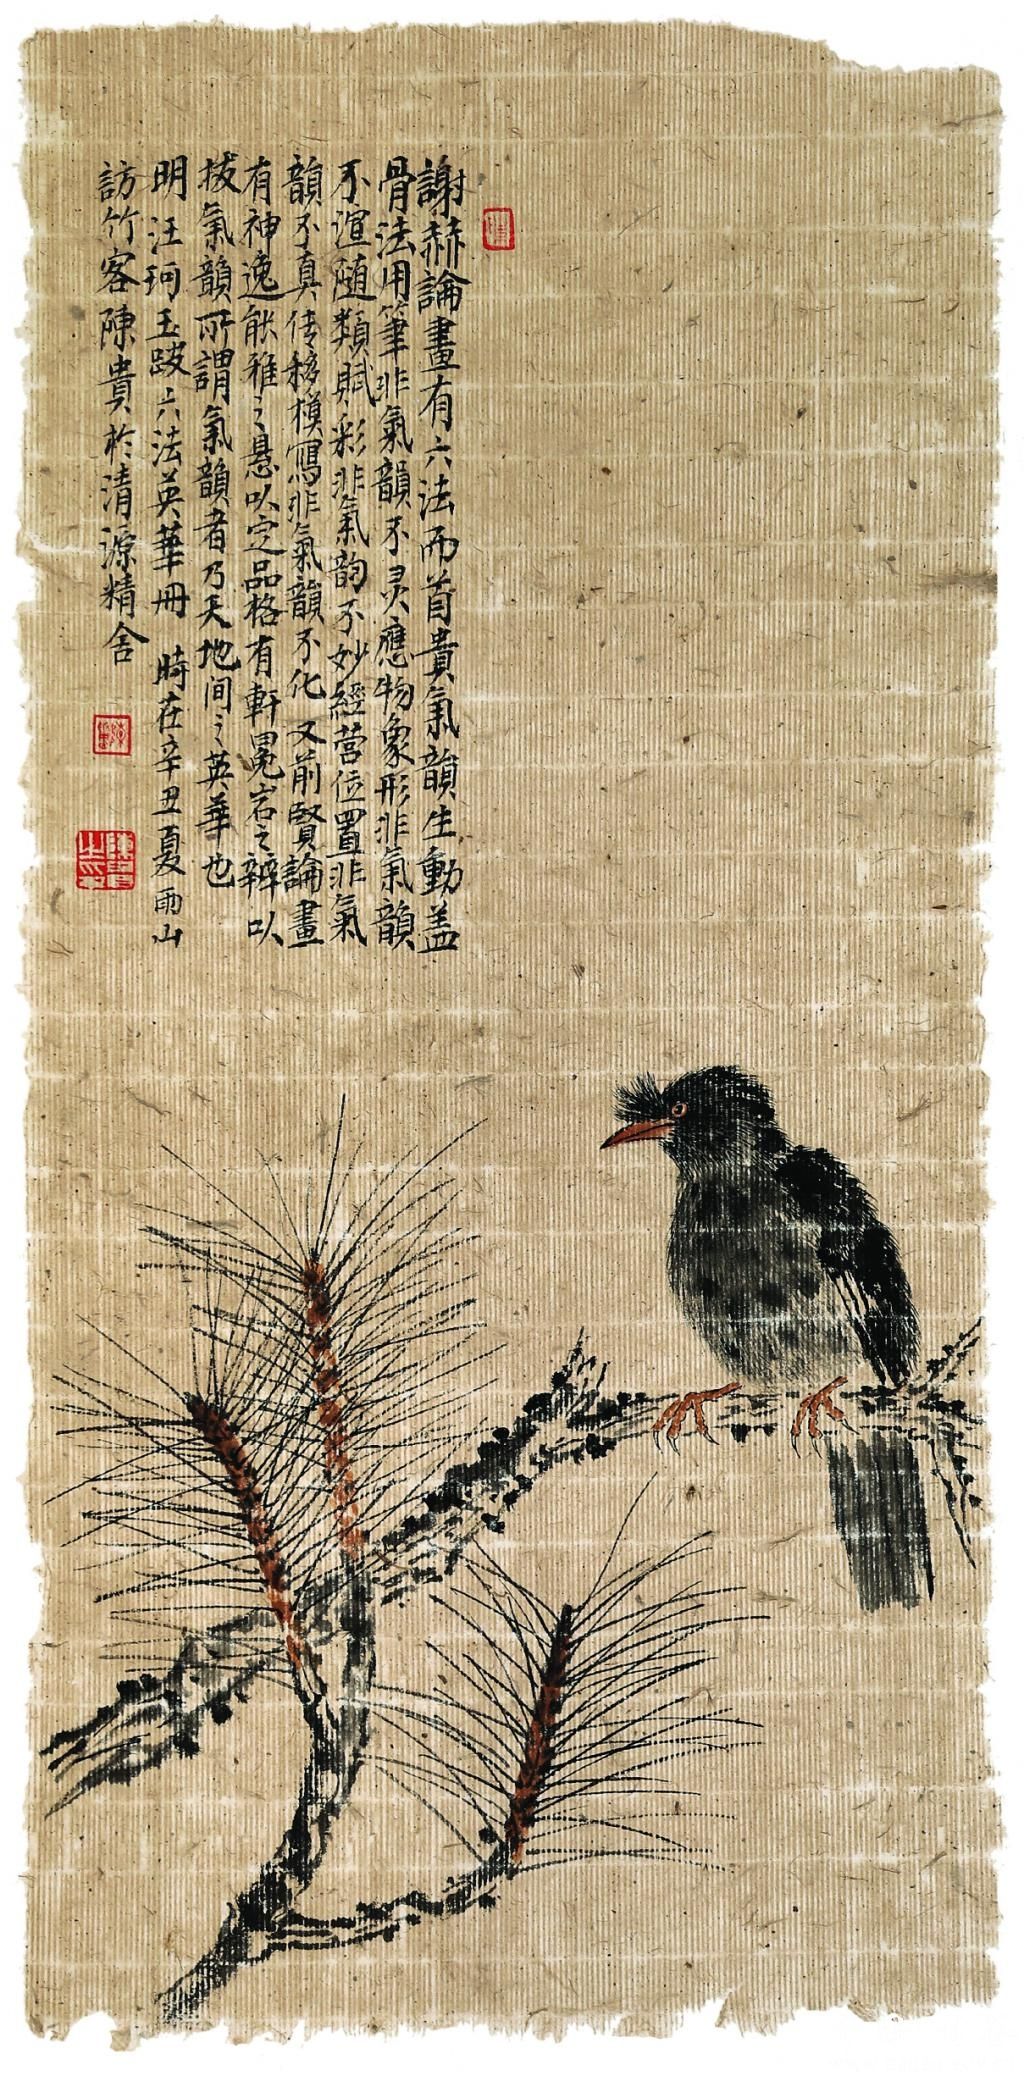 謝赫論畫有六法而首貴氣韻生動盖
骨法用筆非氣韻不灵應物象形非氣韻
不逼随類賦彩非氣韵不妙經营位置非氣
韻不真传移模寫非氣韻不化又前賢論畫
有神逸能雅之悬以定品格有軒冕岩之辨以
拔氣韻所謂氣韻者乃天地间之英華也
明汪珂玉跋六法英華冊 時在辛丑夏雨山
訪竹客陳貴於清源精舍